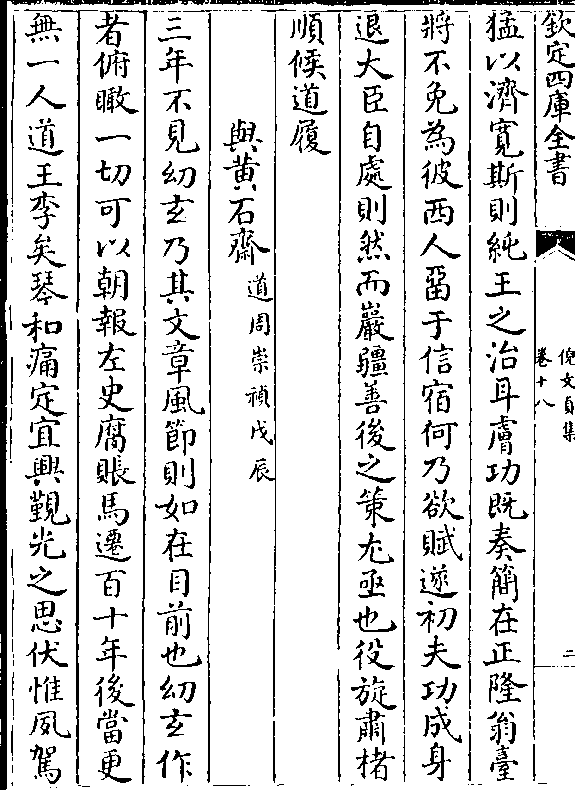 欽定四庫全書
倪文貞集
卷十八
二
猛以濟寛斯則純王之治耳膚功既奏簡在正隆翁臺
將不免為彼西人畱于信宿何乃欲賦遂初夫功成身
退大臣自處則然而巖疆善後之策尤亟也役旋肅楮
順候道履
與黄石齋道周崇禎戊辰
三年不見幼玄乃其文章風節則如在目前也幼玄作
者俯瞰一切可以朝報左史腐賬馬遷百十年後當更
無一人道王李矣琴和痛定宜興觀光之思伏惟夙駕